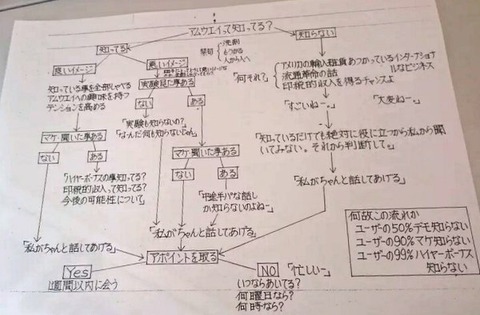 アムウェイって知ってる？
知ってる
知らない
良いイメージ
悪いイメージ
禁句
洗剤
もうかる
人から人へ
知っている事を全部しゃべる
アムウェイへの興味を持つ
テンションを高める
実験見た事ある
ない
ある
「実験も知らないの？」
「なんだ何も知らないじゃん」
「何それ？」
アメリカの輸入雑貨あつかっているインターナショナル
なビジネス
流通革命の話
印税的収入を得るチャンスよ
「すごいねー」
「大変ねー」
「知っているだけでも絶対に役に立つから私から聞
いてみない。それから判断して」
マケ・聞いた事ある
ない
ある
「ハイヤーボーナスの事知ってる？
印税的収入って知ってる？
今後の可能性について」
マケ・聞いた事ある
ない
ある
「中途半パな話し
しか知らないのよねー」
「私がちゃんと話してあげる」
「私がちゃんと話してあげる」
「私がちゃんと話してあげる」
アポイントを取る
Yes
1週間以内に会う
NO
「忙しい」
いつならあいてる？
何曜日なら？
何時なら？
何故この流れか
ユーザーの50％デモ知らない
ユーザーの90％マケ知らない
ユーザーの99％ハイヤーボーナス
知らない